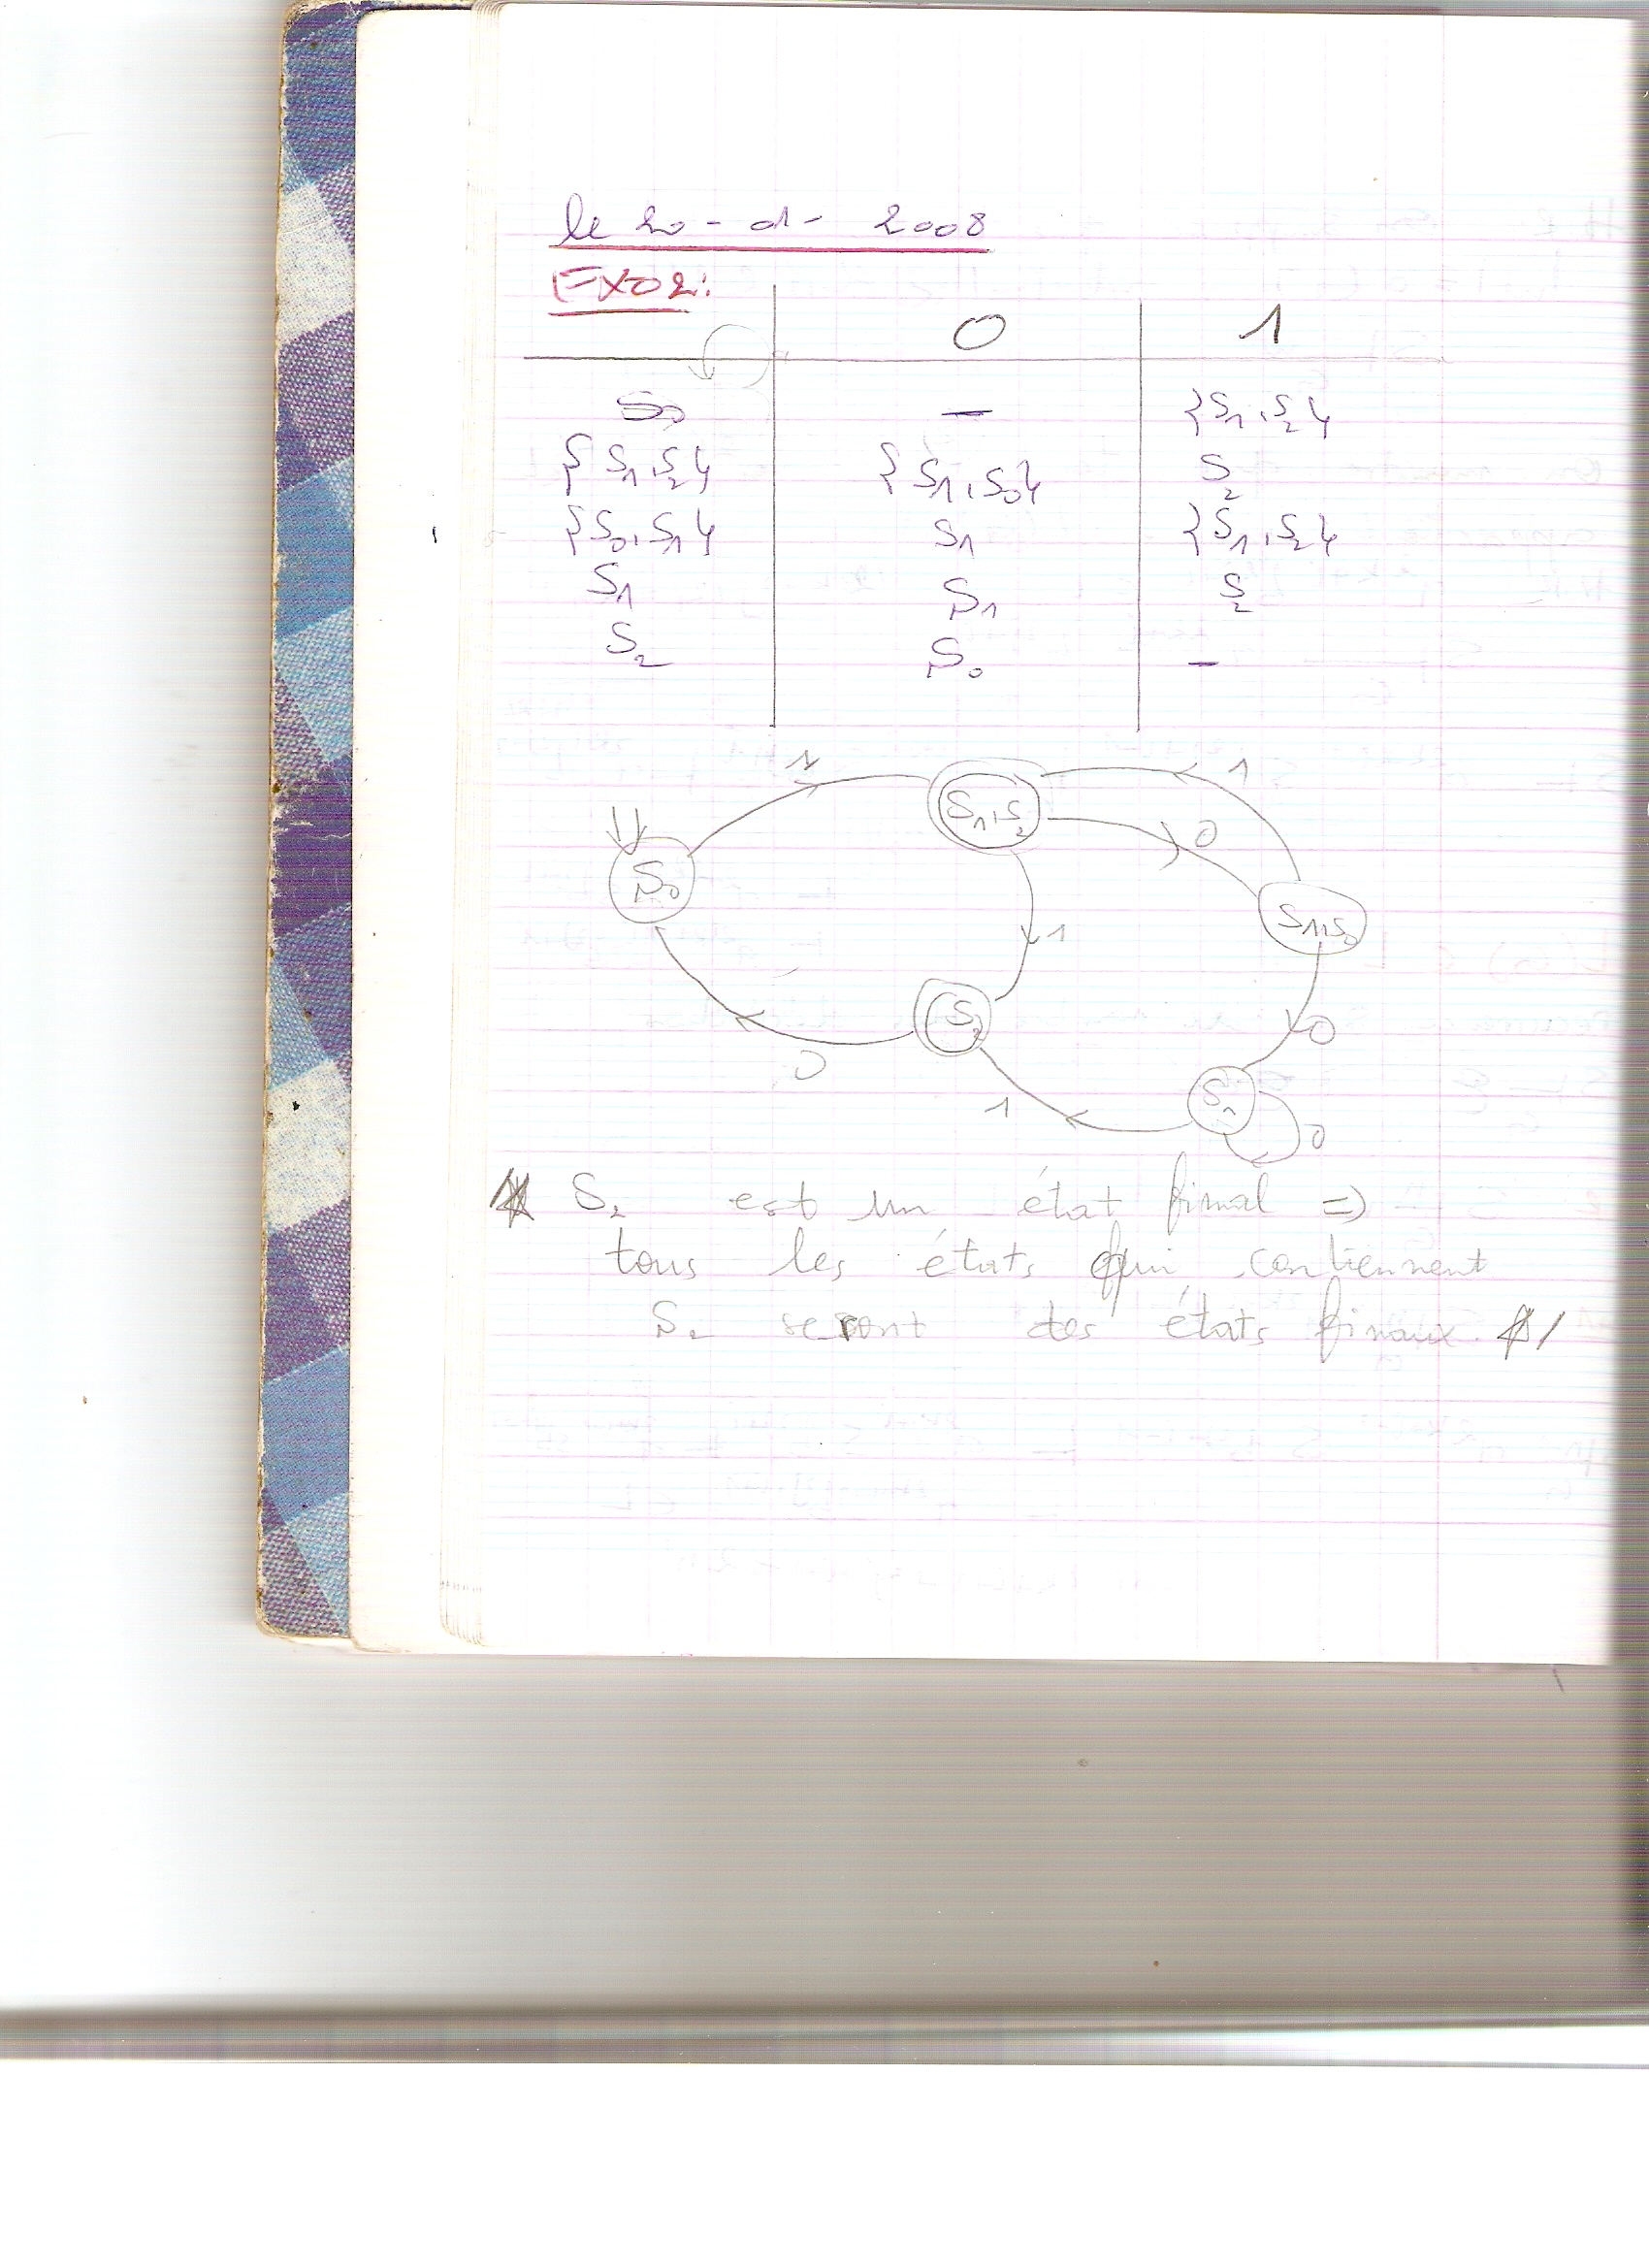 le 20 - 01 - 2008
EXO2:
0 1
S0 — {S1, S2}
{S1, S2} {S1, S0} S2
{S0, S1} S1 {S1, S2}
S1 S1 S2
S2 S0 —
1 1
S1, S2
0
S0
S1, S0
1
S2
0
0
1
S1
0
S2 est un état final =>
tous les états qui contiennent
S2 seront des états finaux.